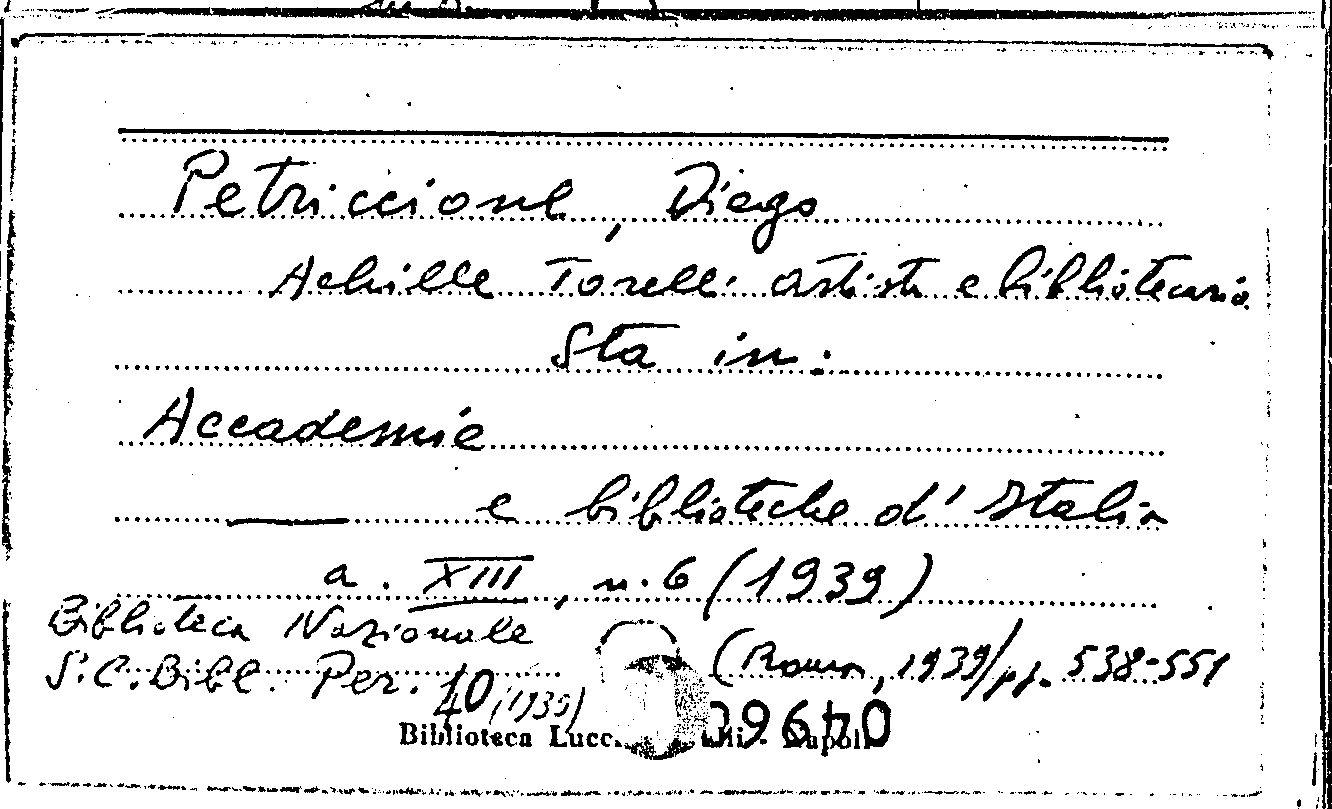 Petriccione, Diego
Achille Torelli artista e bibliotecario.
Sta in:
Accademie
e biblioteche d'Italia
a. XIII, n. 6 (1939)
Biblioteca Nazionale
(Roma, 1939) pp. 538-551
S.C. Bibl. Per. 10 (1939)
Biblioteca Napoli